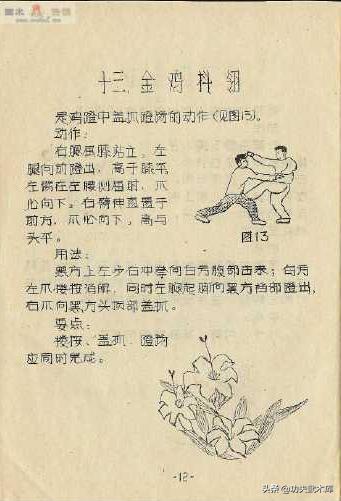 十三、金鸡抖翎
是鸡蹬中盖抓蹬踢的动作(见图13)。
动作:
右腿屈膝站立，左
腿向前蹬出，高于膝平
左臂在左腰侧屈肘，爪
心向下。右臂伸直置于
前方，爪心向下，高与
头平。
图13
用法:
黑方上左步右冲拳向白方腹部击来；白用
左爪搂按消解，同时左腿起脚向黑方裆部蹬出，
右爪向黑方头顶部盖抓。
要点:
搂按、盖抓、蹬踢
应同时完成。
-12-
头条 @功夫武术库